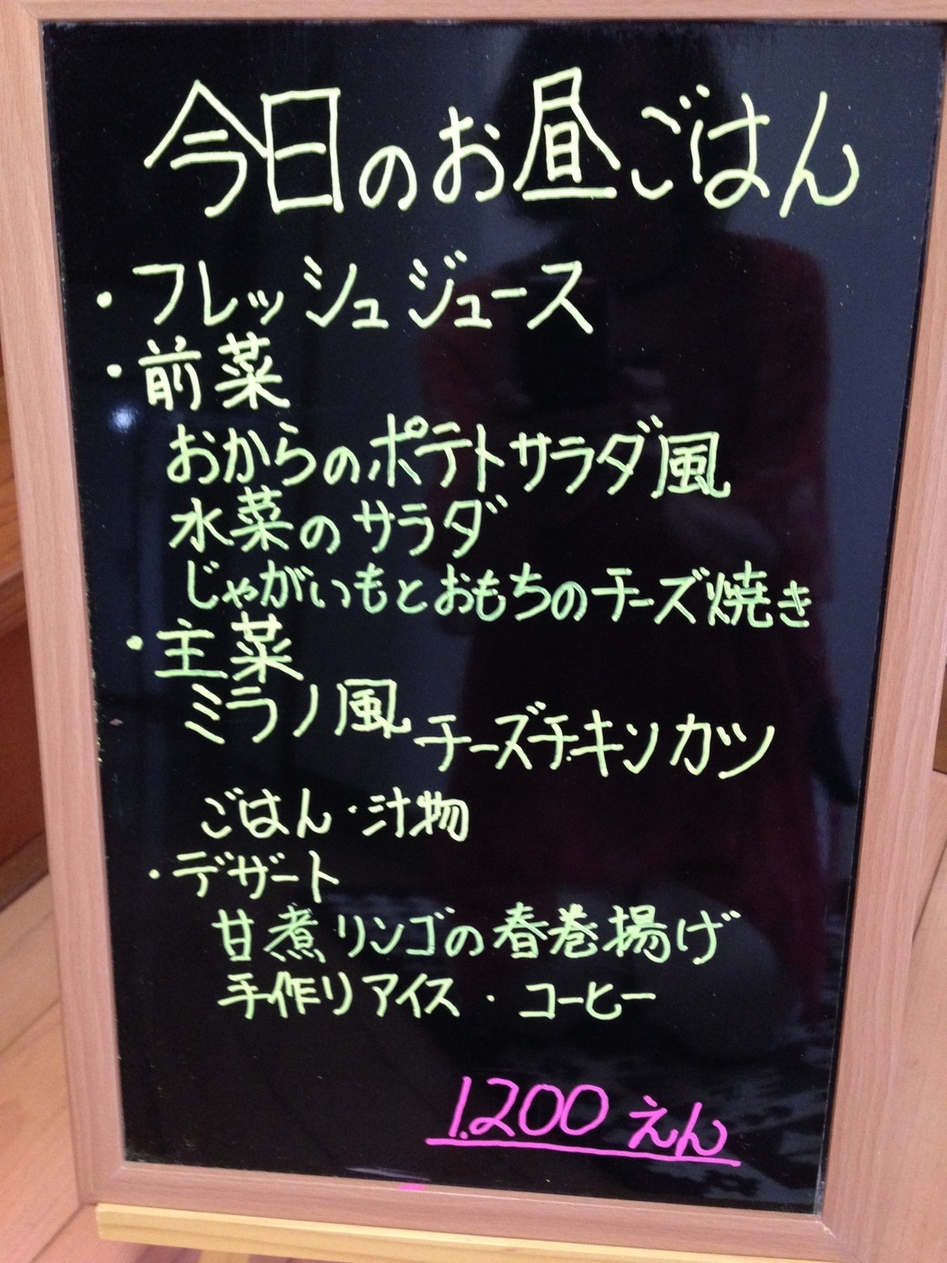 今日のお昼ごはん
・フレッシュジュース
・前菜
おからのポテトサラダ風
水菜のサラダ
じゃがいもとおもちのチーズ焼き
・主菜
ミラノ風チーズチキンカツ
ごはん・汁物
・デザート
甘煮リンゴの春巻揚げ
手作りアイス・コーヒー
1.200えん